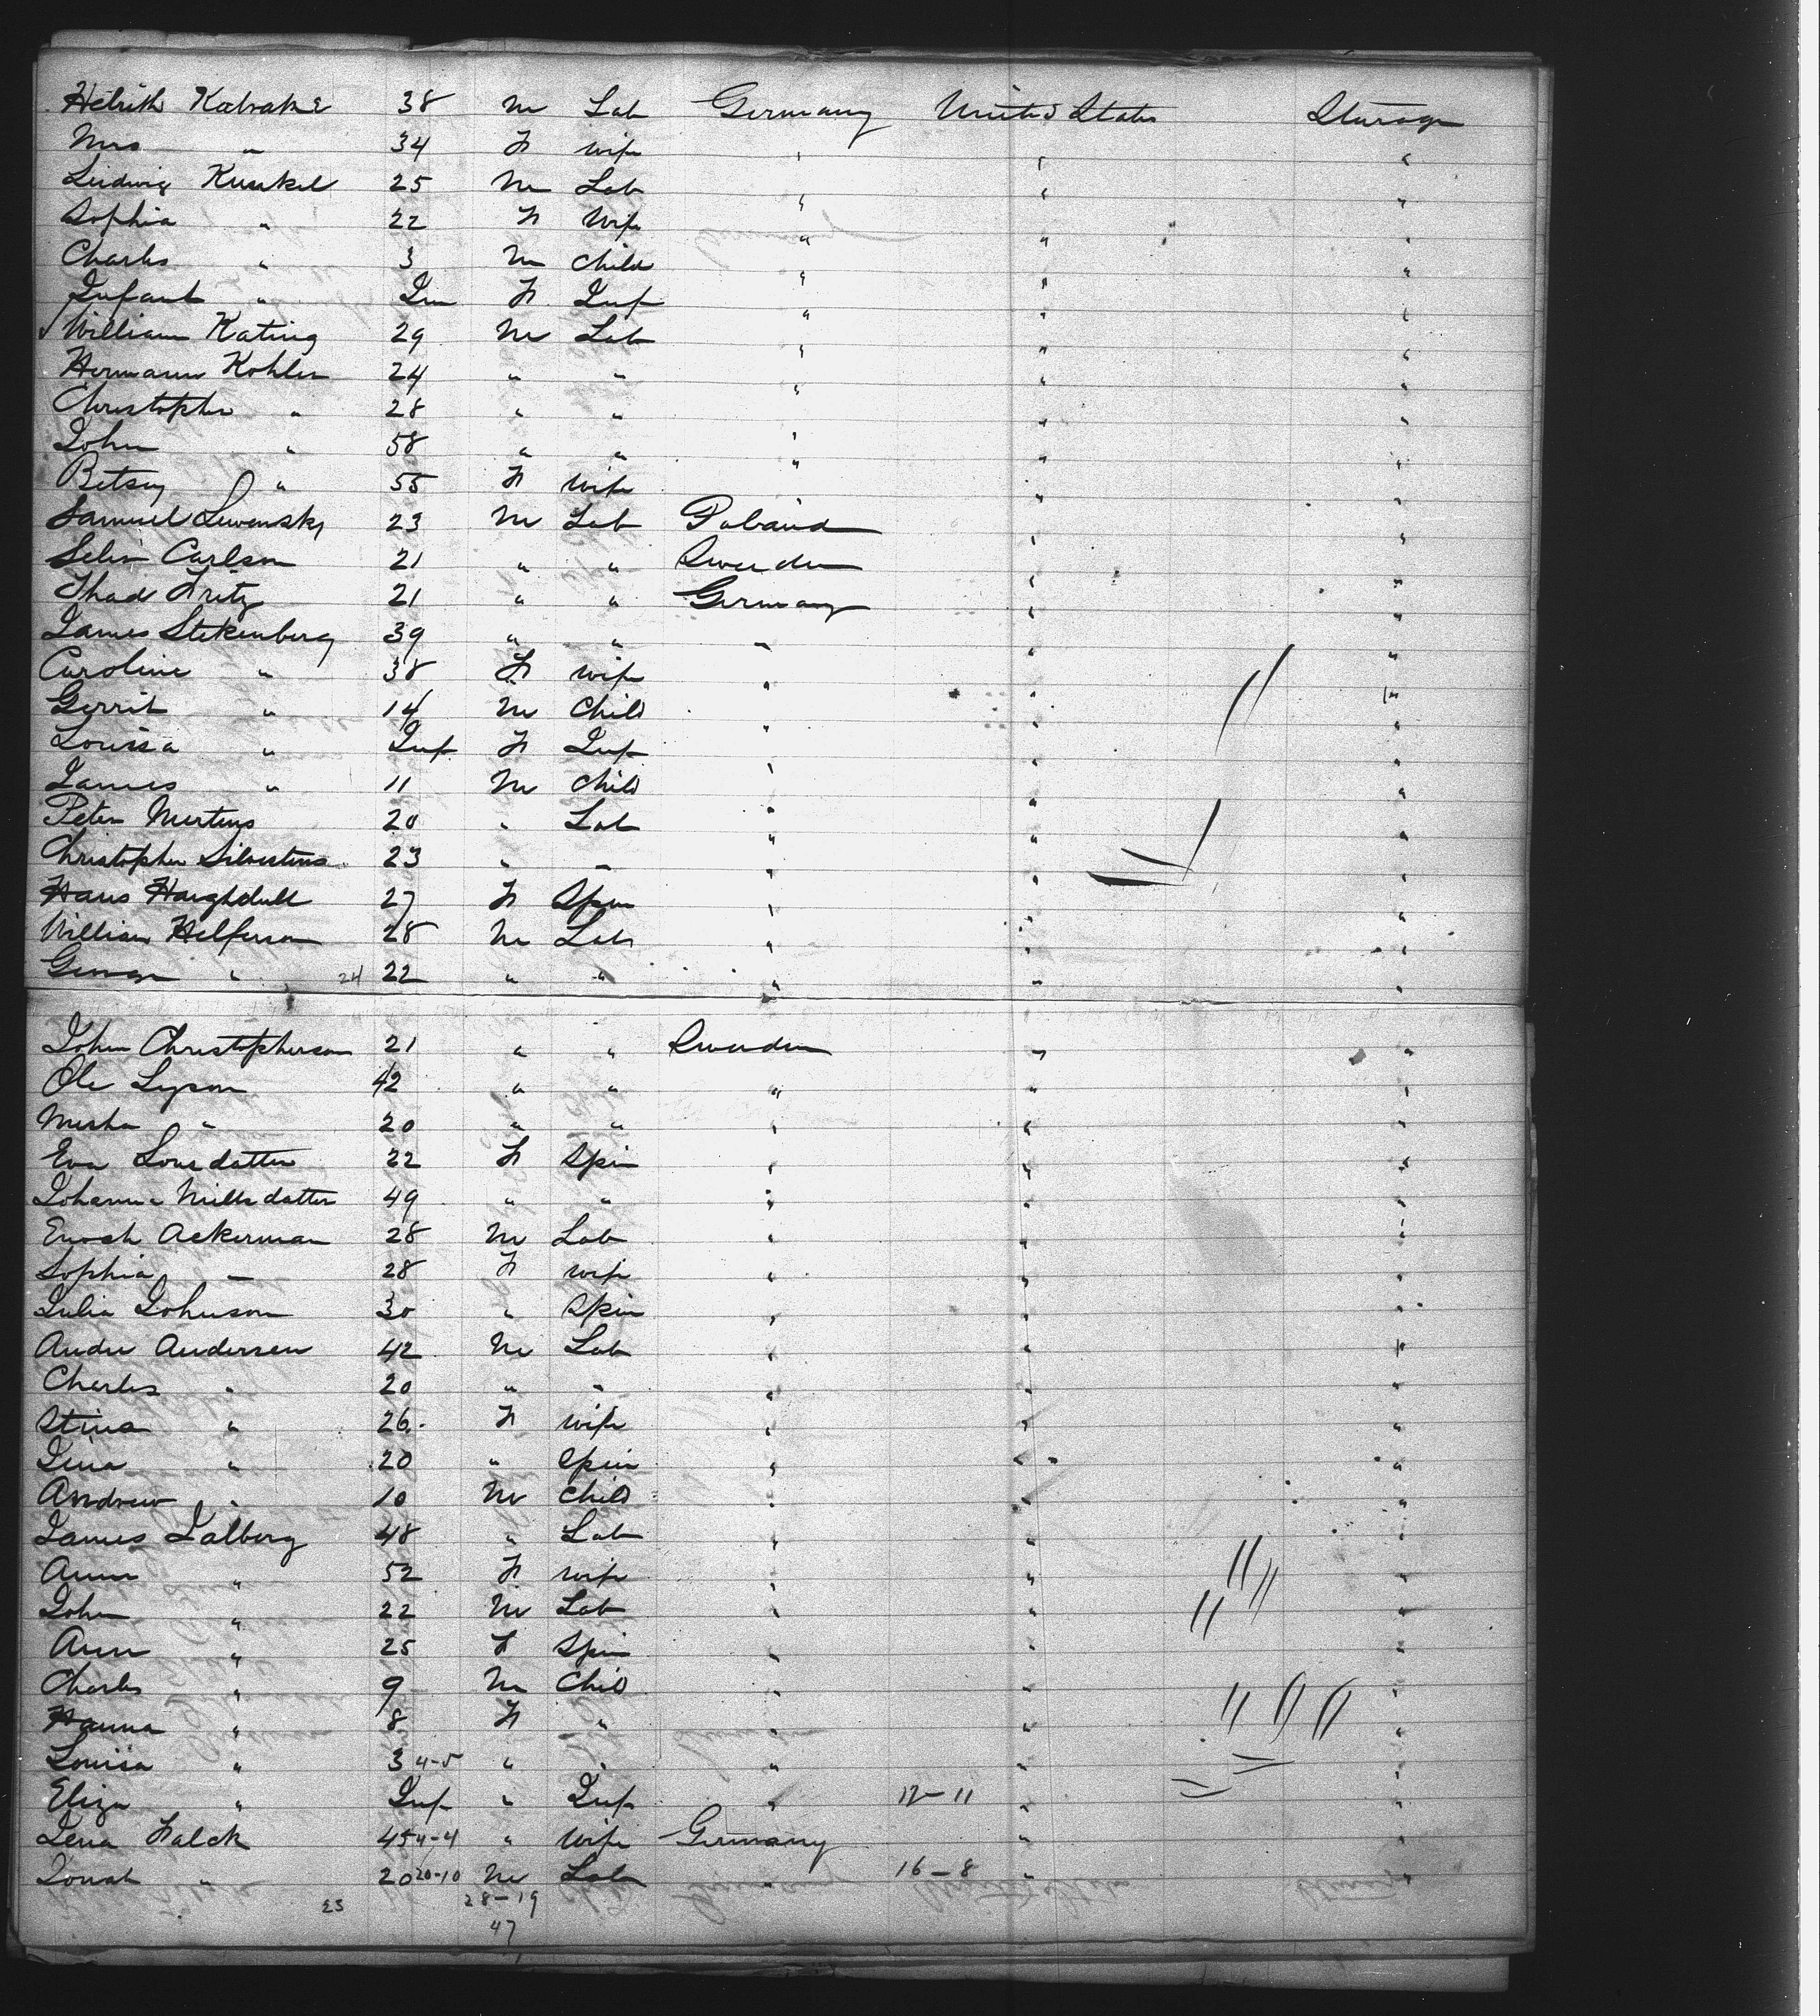 Kabake 38 M Lab Germany United States Sturage
Mrs " 34 F wife " " "
Ludwig Kunkel 25 M Lab " " "
Sophia " 22 F Wife " " "
Charles " 3 M Child " " "
Infant " Inf F Inf " " "
William Kating 29 M Lab " " "
Hermann Kohler 24 " " " " "
Christopher " 28 " " " " "
John " 58 " " " " "
Betsey " 55 F wife " " "
Samuel Lewensky 23 M Lab Poland " "
Carlson 21 " " Sweeden " "
Thad Fritz 21 " " Germany " "
James Stekenberg 39 " " " " "
Caroline " 38 F wife " " "
Gerrit " 14 M Child " " "
Louisa " Inf F Inf " " "
James " 11 M Child " " "
Peter Mertens 20 " Lab " " "
Christopher 23 " " " " "
Hans 27 F Spin " " "
William Helferson 28 M Lab " " "
George " 24 22 " " " " "
John Christopherson 21 " " Sweeden " "
Ole 42 " " " " "
" 20 " " " " "
Eva 22 F Spin " " "
Johanna Nillsdatter 49 " " " " "
Enoch Ackerman 28 M Lab " " "
Sophia " 28 F wife " " "
Julia Johnson 30 " Spin " " "
Andrew Andersen 42 M Lab " " "
Charles " 20 " " " " "
Stina " 26 F wife " " "
" 20 " Spin " " "
Andrew " 10 M Child " " "
James Jalberg 48 " Lab " " "
Anna " 52 F wife " " "
John " 22 M Lab " " "
Ann " 25 F Spin " " "
Charles " 9 M Child " " "
Hanna " 8 F " " " "
Louisa " 3 4-5 " " " " "
Eliza " Inf " Inf " 12-11 " "
Lena Falck 45 4-4 " Wife Germany " "
Jonah " 20 20-10 M Lab " 16-8 " "
23 28-19
47